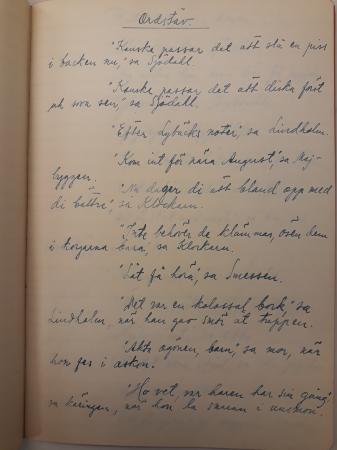 Ordstäv.
"Kanske passar det att slå en piss
i backen nu," sa Sjödahl.
"Kanske passar det att diska först
och sen," sa Sjödahl.
"Efter Lybäcks noter," sa Lindholm.
"Kom int för nära August," sa Maj-
byggarn.
"Nu duger di att bland opp med
di bättre," sa Klockarn.
"Int behöver de klämmas, ösen dem
i korgarna bara," sa Klockarn.
"Låt få höra," sa Smessen.
"Det var en kolossal bock," sa
Lindholm, när han gav smör åt tuppen.
"Akta ögonen, barn," sa mor, när
hon fes i askon.
"Ho vet, var haren har sin gång,"
sa käringen, när hon la snaran i